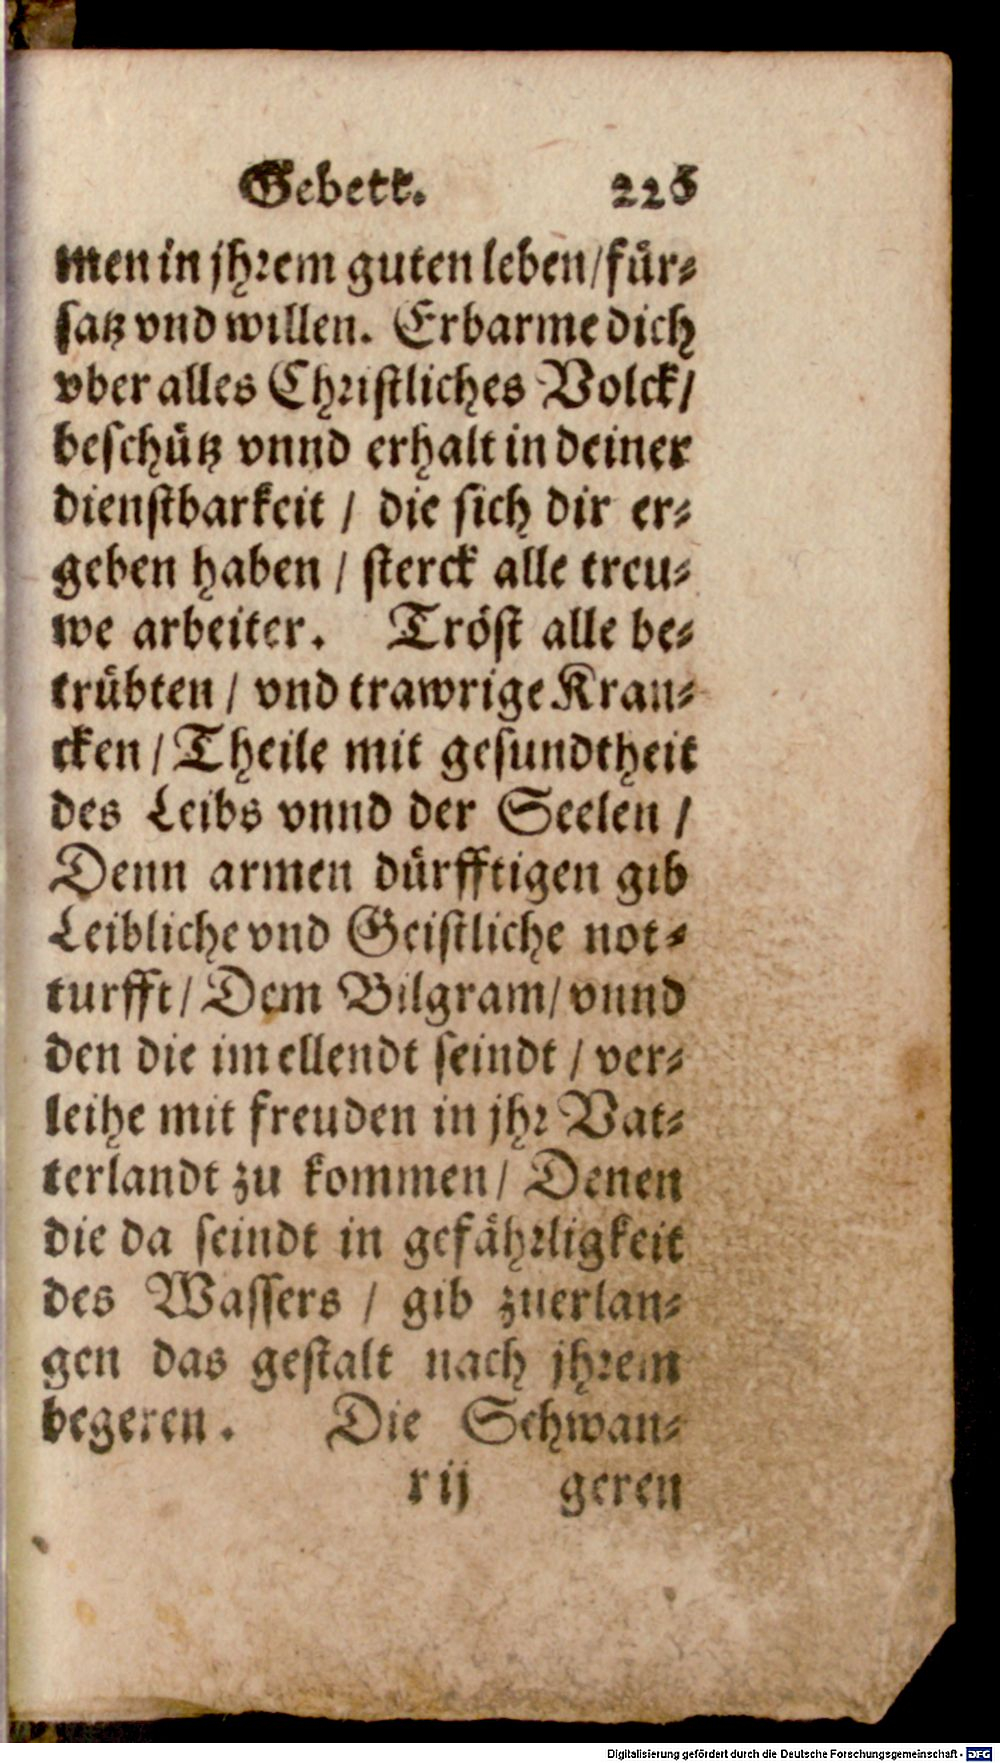 Gebett. 226
men in jhrem guten leben/für⸗
satz vnd willen. Erbarme dich
vber alles Christliches Volck/
beschütz vnnd erhalt in deiner
dienstbarkeit / die sich dir er⸗
geben haben / sterck alle treu⸗
we arbeiter. Tröst alle be⸗
trübten / vnd trawrige Kran⸗
cken / Theile mit gesundtheit
des Leibs vnnd der Seelen /
Denn armen dürfftigen gib
Leibliche vnd Geistliche not⸗
turfft/ Dem Bilgram/ vnnd
den die im ellendt seindt / ver⸗
leihe mit freuden in jhr Vat⸗
terlandt zu kommen/ Denen
die da seindt in gefährligkeit
des Wassers / gib zuerlan⸗
gen das gestalt nach jhrem
begeren. Die Schwan⸗
r ij geren
Digitalisierung gefördert durch die Deutsche Forschungsgemeinschaft - DFG